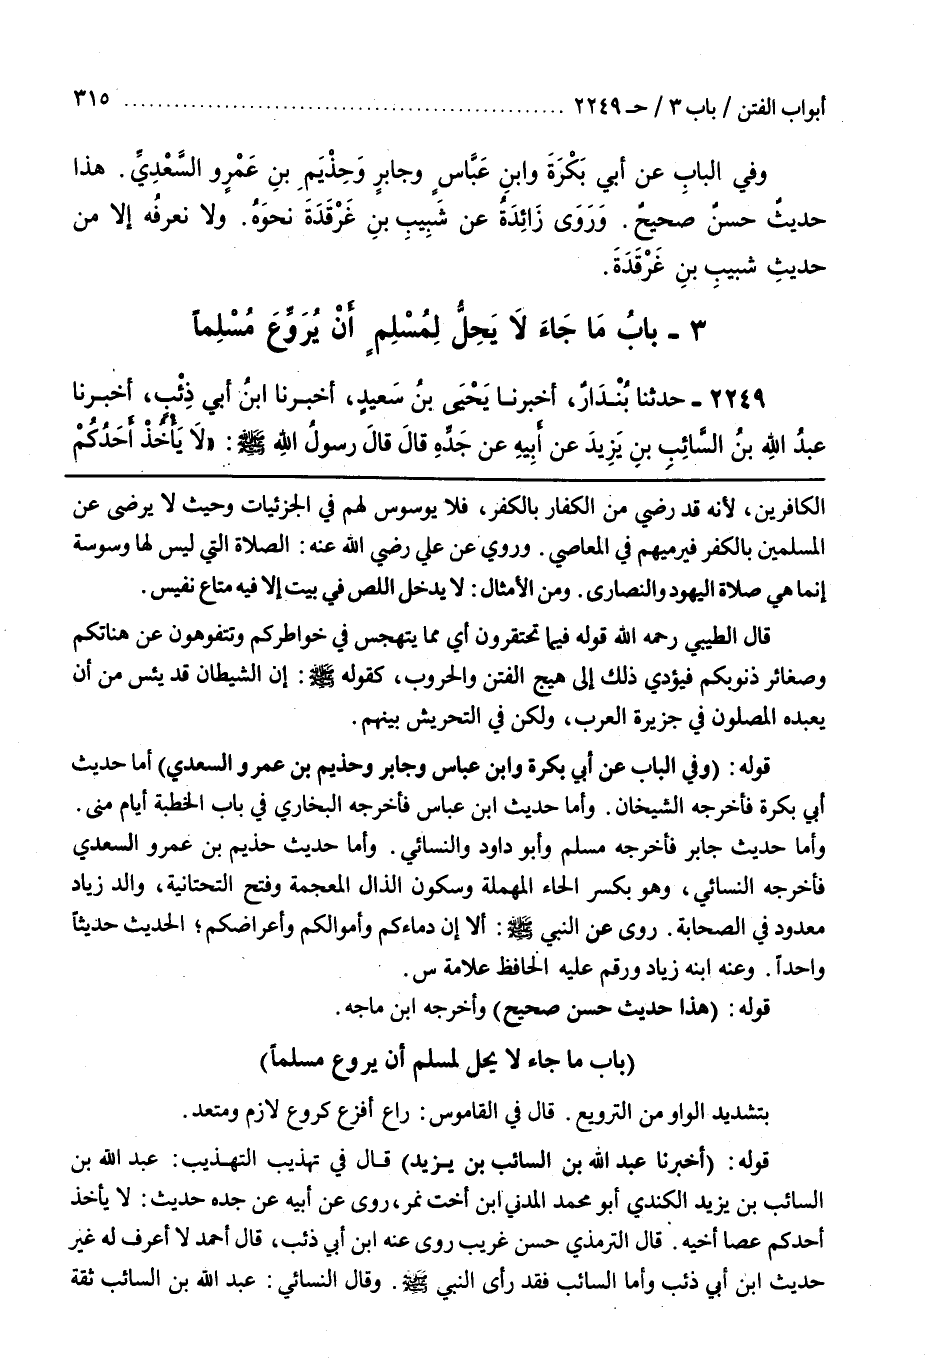 أبواب الفتن / باب ٣ / حـ ٢٢٤٩ ................................................ ٣١٥
وفي البابِ عن أبي بَكْرَةَ وابنِ عَبَّاسٍ وجابرٍ وَحِذْيَمِ بنِ عَمْرِو السَّعْدِيِّ. هذا
حديثٌ حسنٌ صحيحٌ. وَرَوَى زَائِدَةُ عن شَبِيبِ بنِ غَرْقَدَةَ نحوَهُ. ولا نعرفُه إلا من
حديثِ شبيبِ بنِ غَرْقَدَةَ.
٣ ـ بابُ مَا جَاءَ لَا يَحِلُّ لِمُسْلِمٍ أَنْ يُرَوِّعَ مُسْلِماً
٢٢٤٩ ـ حدثنا بُنْدَارٌ، أخبرنا يَحْيَى بنُ سَعيدٍ، أخبرنا ابنُ أبي ذِئْبٍ، أخبرنا
عبدُ اللهِ بنُ السَّائِبِ بنِ يَزِيدَ عن أَبِيهِ عن جَدِّهِ قالَ قالَ رسولُ اللهِ ﷺ: «لَا يَأْخُذْ أَحَدُكُمْ
الكافرين، لأنه قد رضي من الكفار بالكفر، فلا يوسوس لهم في الجزئيات وحيث لا يرضى عن
المسلمين بالكفر فيرميهم في المعاصي. وروي عن علي رضي الله عنه: الصلاة التي ليس لها وسوسة
إنما هي صلاة اليهود والنصارى. ومن الأمثال: لا يدخل اللص في بيت إلا فيه متاع نفيس.
قال الطيبي رحمه الله قوله فيما تحتقرون أي مما يتهجس في خواطركم وتتفوهون عن هناتكم
وصغائر ذنوبكم فيؤدي ذلك إلى هيج الفتن والحروب، كقوله ﷺ: إن الشيطان قد يئس من أن
يعبده المصلون في جزيرة العرب، ولكن في التحريش بينهم.
قوله: (وفي الباب عن أبي بكرة وابن عباس وجابر وحذيم بن عمرو السعدي) أما حديث
أبي بكرة فأخرجه الشيخان. وأما حديث ابن عباس فأخرجه البخاري في باب الخطبة أيام منى.
وأما حديث جابر فأخرجه مسلم وأبو داود والنسائي. وأما حديث حذيم بن عمرو السعدي
فأخرجه النسائي، وهو بكسر الحاء المهملة وسكون الذال المعجمة وفتح التحتانية، والد زياد
معدود في الصحابة. روى عن النبي ﷺ: ألا إن دماءكم وأموالكم وأعراضكم؛ الحديث حديثاً
واحداً. وعنه ابنه زياد ورقم عليه الحافظ علامة س.
قوله: (هذا حديث حسن صحيح) وأخرجه ابن ماجه.
(باب ما جاء لا يحل لمسلم أن يروع مسلماً)
بتشديد الواو من الترويع. قال في القاموس: راع أفزع كروع لازم ومتعد.
قوله: (أخبرنا عبد الله بن السائب بن يزيد) قال في تهذيب التهذيب: عبد الله بن
السائب بن يزيد الكندي أبو محمد المدني ابن أخت نمر، روى عن أبيه عن جده حديث: لا يأخذ
أحدكم عصا أخيه. قال الترمذي حسن غريب روى عنه ابن أبي ذئب، قال أحمد لا أعرف له غير
حديث ابن أبي ذئب وأما السائب فقد رأى النبي ﷺ. وقال النسائي: عبد الله بن السائب ثقة